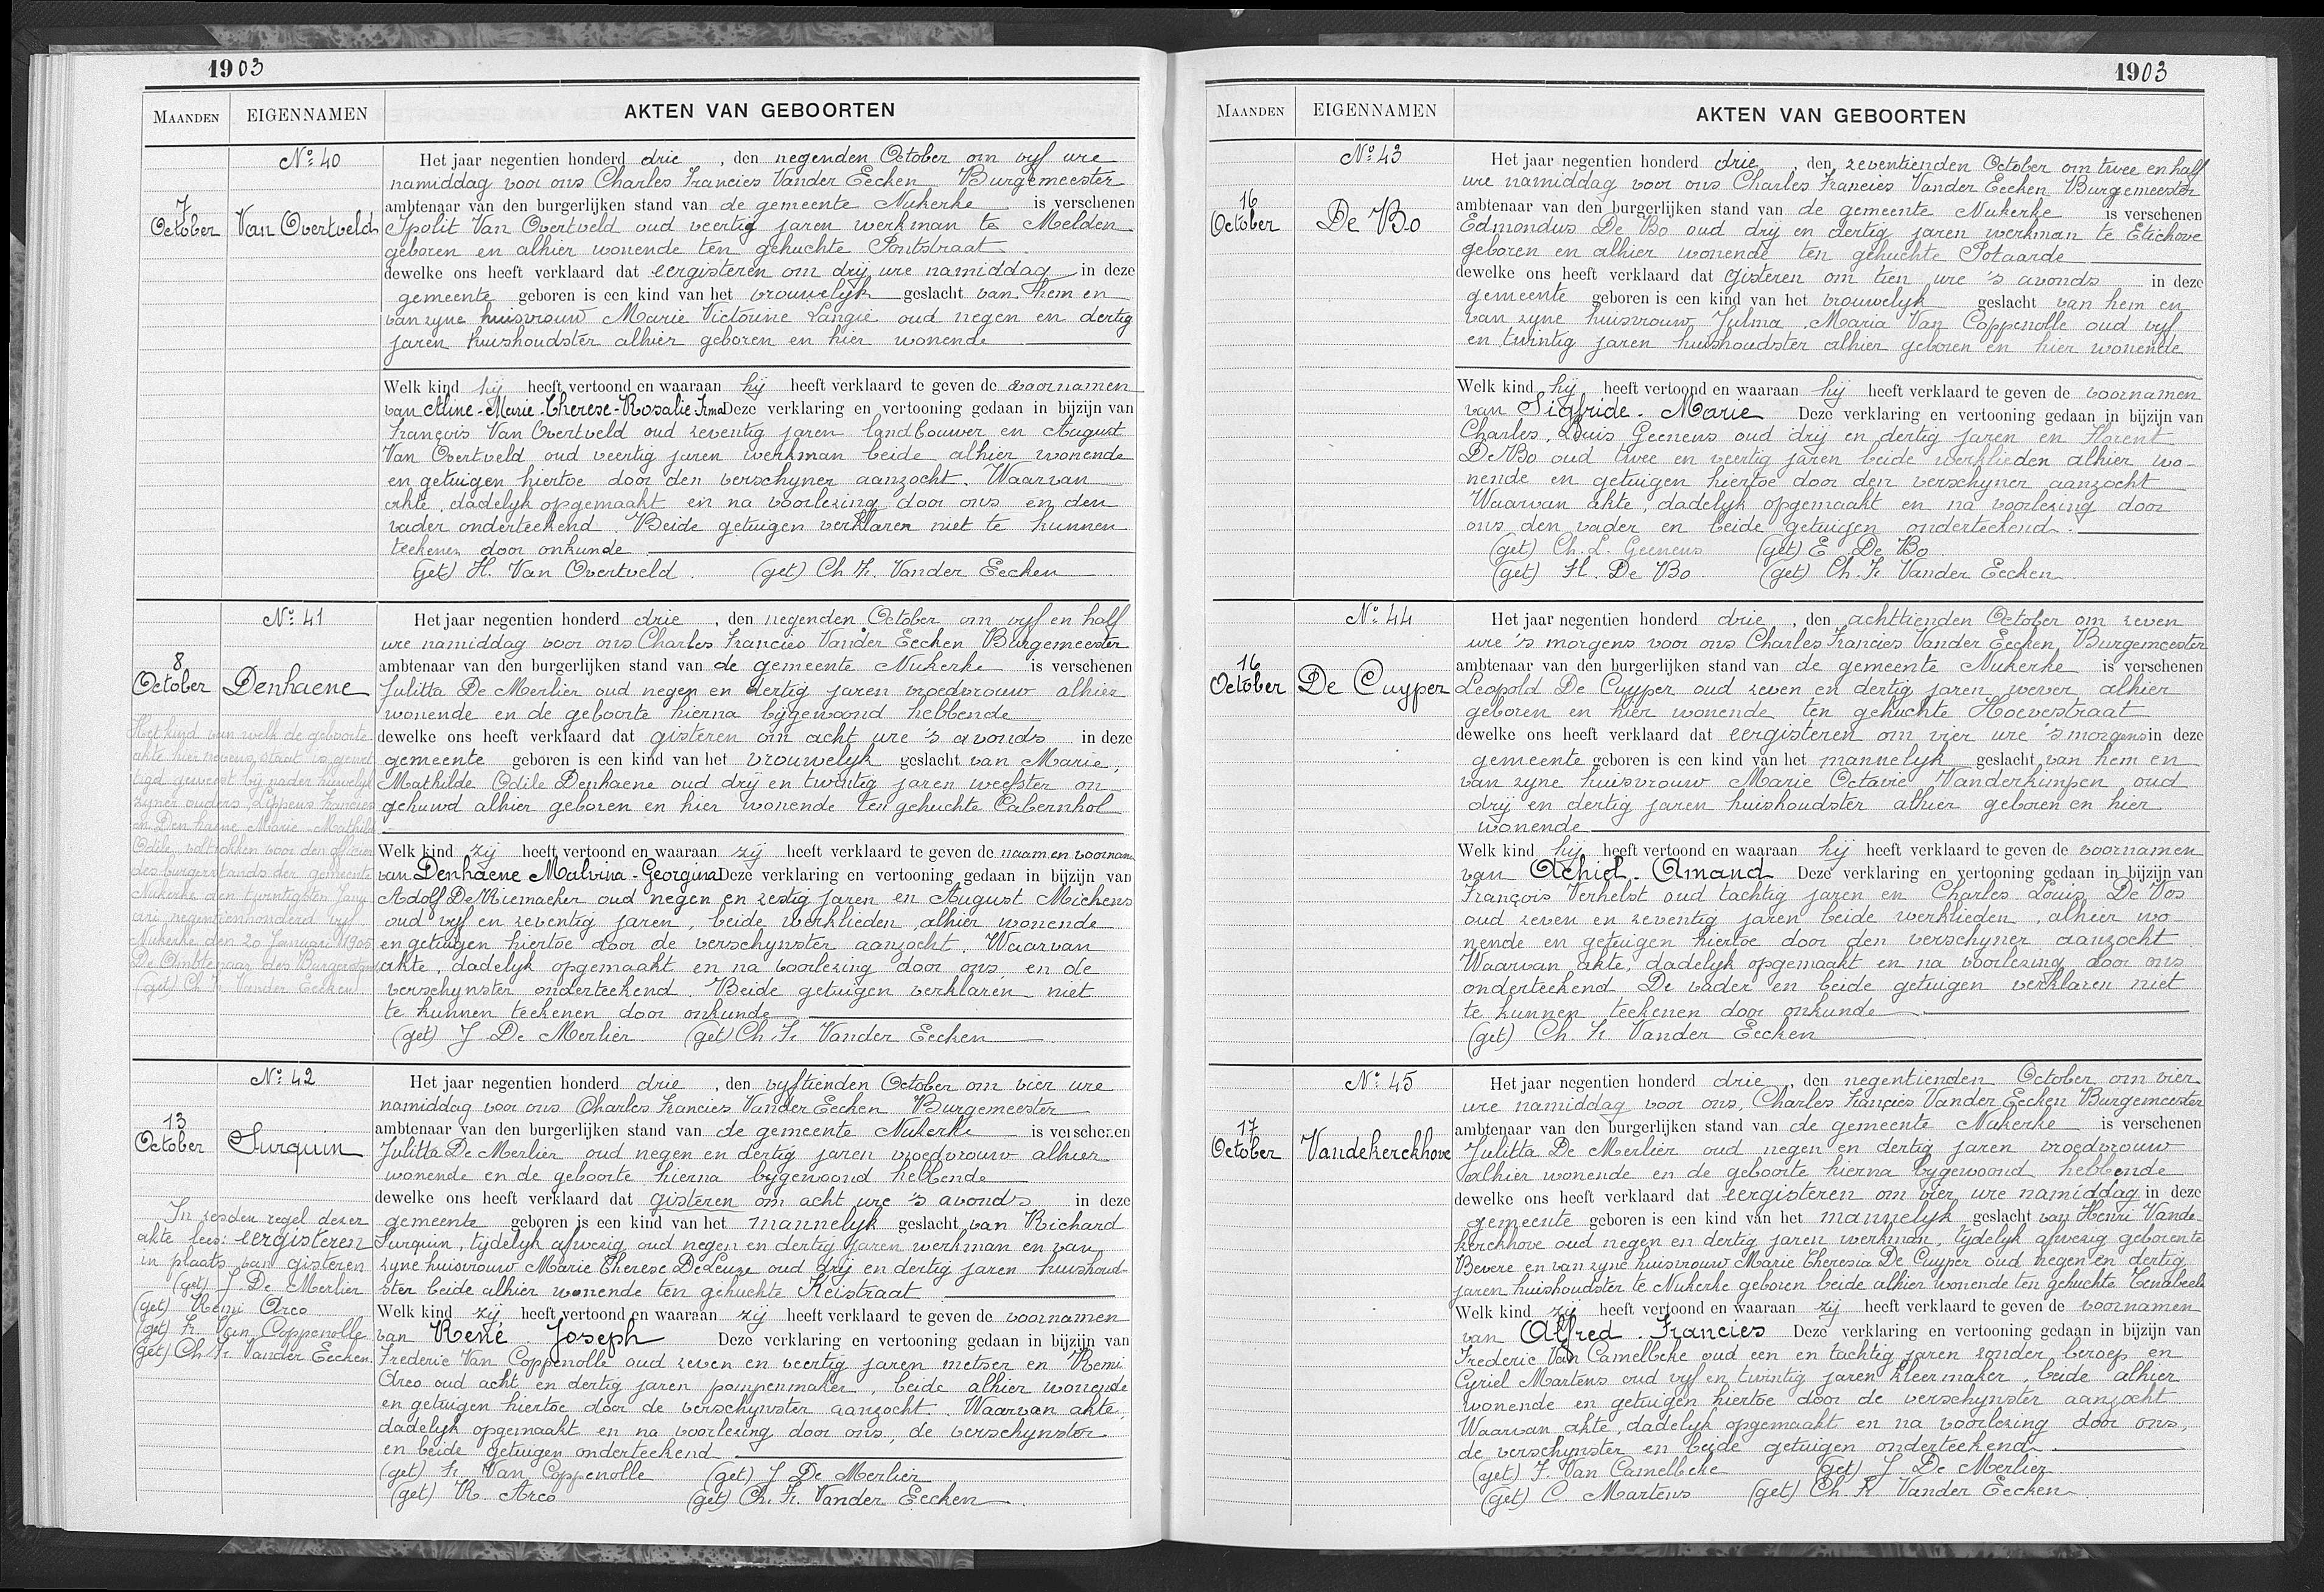 1903
MAANDEN EIGENNAMEN AKTEN VAN GEBOORTEN
No: 40
7
October
Van Overtveld
Het jaar negentien honderd drie, den negenden October om vyf ure
namiddag voor ons Charles Francies Vander Eecken Burgemeester
ambtenaar van den burgerlijken stand van de gemeente Nukerke is verschenen
Ipolit Van Overtveld oud veertig jaren werkman te Melden
geboren en alhier wonende ten gehuchte Pontstraat
dewelke ons heeft verklaard dat eergisteren om drij ure namiddag in deze
gemeente geboren is een kind van het vrouwelyk geslacht van hem en
van zyne huisvrouw Marie Victorine Langie oud negen en dertig
jaren huishoudster alhier geboren en hier wonende
Welk kind hij heeft vertoond en waaraan hij heeft verklaard te geven de voornamen
van Aline-Marie-Therese-Rosalie-Irma Deze verklaring en vertooning gedaan in bijzijn van
François Van Overtveld oud zeventig jaren landbouwer en August
Van Overtveld oud veertig jaren werkman beide alhier wonende
en getuigen hiertoe door den verschyner aanzocht. Waarvan
akte, dadelyk opgemaakt en na voorlezing door ons en den
vader onderteekend. Beide getuigen verklaren niet te kunnen
teekenen door onkunde
(get) H. Van Overtveld. (get) Ch. Fr. Vander Eecken
No: 41
8
October
Denhaene
Het kind van welk de geboorte
akte hier nevens staat is gewet
tigd geweest bij nader huwelyk
zyner ouders, Lippens Francies
en Denhaene Marie-Mathilde
Odile, voltrokken voor den officier
des burgerstands der gemeente
Nukerke den twintigsten Janu
ari negentienhonderd vyf
Nukerke den 20 Januari 1905
De Ambtenaar des Burgerstands
(get) Ch Fr Vander Eecken
Het jaar negentien honderd drie, den negenden October om vyf en half
ure namiddag voor ons Charles Francies Vander Eecken Burgemeester
ambtenaar van den burgerlijken stand van de gemeente Nukerke is verschenen
Julitta De Merlier oud negen en dertig jaren vroedvrouw alhier
wonende en de geboorte hierna bijgewoond hebbende
dewelke ons heeft verklaard dat gisteren om acht ure 's avonds in deze
gemeente geboren is een kind van het vrouwelyk geslacht van Marie,
Mathilde Odile Denhaene oud drij en twintig jaren weefster on-
gehuwd alhier geboren en hier wonende ten gehuchte Cabernhol
Welk kind zij heeft vertoond en waaraan zij heeft verklaard te geven de naam en voornamen
van Denhaene Malvina-Georgina Deze verklaring en vertooning gedaan in bijzijn van
Adolf De Riemacker oud negen en zestig jaren en August Michens
oud vyf en zeventig jaren, beide werklieden alhier wonende
en getuigen hiertoe door de verschynster aanzocht. Waarvan
akte, dadelyk opgemaakt en na voorlezing door ons en de
verschynster onderteekend. Beide getuigen verklaren niet
te kunnen teekenen door onkunde
(get) J. De Merlier. (get) Ch. Fr. Vander Eecken
No: 42
13
October
Surquin
In zesden regel dezer
akte lees: eergisteren
in plaats van gisteren
(get) J De Merlier
(get) Remi Arco
(get) Fr. Van Coppenolle
(get) Ch Fr Vander Eecken.
Het jaar negentien honderd drie, den vyftienden October om vier ure
namiddag voor ons Charles Francies Vander Eecken Burgemeester
ambtenaar van den burgerlijken stand van de gemeente Nukerke is verschenen
Julitta De Merlier oud negen en dertig jaren vroedvrouw alhier
wonende en de geboorte hierna bygewoond hebbende
dewelke ons heeft verklaard dat gisteren om acht ure 's avonds in deze
gemeente geboren is een kind van het mannelyk geslacht van Richard
Surquin, tijdelyk afwezig oud negen en dertig jaren werkman en van
zyne huisvrouw Marie Therese De Leuze oud drij en dertig jaren huishoud-
ster beide alhier wonende ten gehuchte Keistraat
Welk kind zij heeft vertoond en waaraan zij heeft verklaard te geven de voornamen
van René. Joseph Deze verklaring en vertooning gedaan in bijzijn van
Frederic Van Coppenolle oud zeven en veertig jaren metser en Remi
Arco oud acht en dertig jaren pompenmaker, beide alhier wonende
en getuigen hiertoe door de verschynster aanzocht. Waarvan akte,
dadelyk opgemaakt en na voorlezing door ons, de verschynster
en beide getuigen onderteekend
(get) Fr. Van Coppenolle (get) J De Merlier
(get) R. Arco (get) Ch. Fr. Vander Eecken
1903
MAANDEN EIGENNAMEN AKTEN VAN GEBOORTEN
No: 43
16
October
De Bo
Het jaar negentien honderd drie, den zeventienden October om twee en half
ure namiddag voor ons Charles Francies Vander Eecken Burgemeester
ambtenaar van den burgerlijken stand van de gemeente Nukerke is verschenen
Edmondus De Bo oud drij en dertig jaren werkman te Etichove
geboren en alhier wonende ten gehuchte Potaarde
dewelke ons heeft verklaard dat gisteren om tien ure 's avonds in deze
gemeente geboren is een kind van het vrouwelyk geslacht van hem en
van zyne huisvrouw Julma Maria Van Coppenolle oud vyf
en twintig jaren huishoudster alhier geboren en hier wonende
Welk kind hij heeft vertoond en waaraan hij heeft verklaard te geven de voornamen
van Sigfride. Marie Deze verklaring en vertooning gedaan in bijzijn van
Charles, Louis Geenens oud drij en dertig jaren en Florent
De Bo oud twee en veertig jaren beide werklieden alhier wo-
nende en getuigen hiertoe door den verschyner aanzocht
Waarvan akte, dadelyk opgemaakt en na voorlezing door
ons den vader en beide getuigen onderteekend.
(get) Ch. L. Geenens (get) E De Bo
(get) Fl. De Bo. (get) Ch. Fr Vander Eecken
No: 44
16
October
De Cuyper
Het jaar negentien honderd drie, den achttienden October om zeven
ure 's morgens voor ons Charles Francies Vander Eecken Burgemeester
ambtenaar van den burgerlijken stand van de gemeente Nukerke is verschenen
Leopold De Cuyper oud zeven en dertig jaren wever alhier
geboren en hier wonende ten gehuchte Hoevestraat
dewelke ons heeft verklaard dat eergisteren om vier ure 's morgens in deze
gemeente geboren is een kind van het mannelyk geslacht van hem en
van zyne huisvrouw Marie Octavie Vanderkimpen oud
drij en dertig jaren huishoudster alhier geboren en hier
wonende
Welk kind hij heeft vertoond en waaraan hij heeft verklaard te geven de voornamen
van Achiel. Amand Deze verklaring en vertooning gedaan in bijzijn van
François Verhelst oud tachtig jaren en Charles Louis De Vos
oud zeven en zeventig jaren beide werklieden, alhier wo-
nende en getuigen hiertoe door den verschyner aanzocht
Waarvan akte, dadelyk opgemaakt en na voorlezing door ons
onderteekend De vader en beide getuigen verklaren niet
te kunnen teekenen door onkunde
(get) Ch. Fr. Vander Eecken
No: 45
17
October
Vandekerckhove
Het jaar negentien honderd drie, den negentienden October om vier
ure namiddag voor ons, Charles Francies Vander Eecken Burgemeester
ambtenaar van den burgerlijken stand van de gemeente Nukerke is verschenen
Julitta De Merlier oud negen en dertig jaren vroedvrouw
alhier wonende en de geboorte hierna bygewoond hebbende
dewelke ons heeft verklaard dat eergisteren om vier ure namiddag in deze
gemeente geboren is een kind van het mannelyk geslacht van Henri Vande-
kerckhove oud negen en dertig jaren werkman, tijdelyk afwezig geboren te
Bevere en van zyne huisvrouw Marie Theresia De Cuyper oud negen en dertig
jaren huishoudster te Nukerke geboren beide alhier wonende ten gehuchte Tenabeele
Welk kind zij heeft vertoond en waaraan zij heeft verklaard te geven de voornamen
van Alfred. Francies Deze verklaring en vertooning gedaan in bijzijn van
Frederic Van Camelbeke oud een en tachtig jaren zonder beroep en
Cyriel Martens oud vyf en twintig jaren kleermaker, beide alhier
wonende en getuigen hiertoe door de verschynster aanzocht
Waarvan akte, dadelyk opgemaakt en na voorlezing door ons,
de verschynster en beide getuigen onderteekend.
(get) F. Van Camelbeke (get) J De Merlier
(get) C. Martens (get) Ch. Fr. Vander Eecken